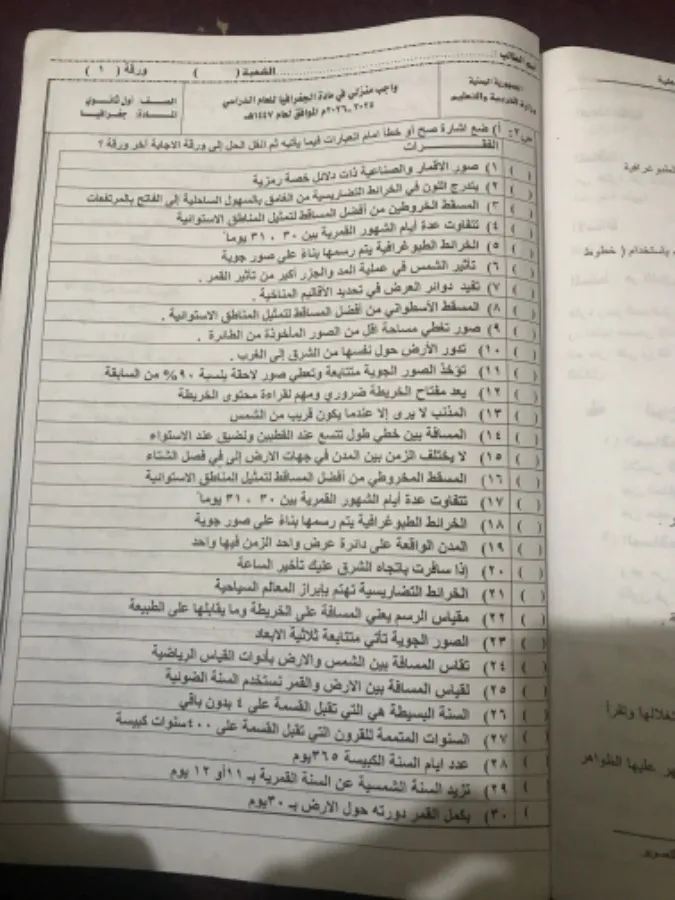 اسم الطالب : الشعبة ( ) ورقة ( ١ )
الجمهورية اليمنية
وزارة التربية والتعليم
واجب منزلي في مادة الجغرافيا للعام الدراسي
٢٠٢٥ - ٢٠٢٦م الموافق لعام ١٤٤٧هـ
الصف : أول ثانوي
المادة: جغرافيا
أ) ضع اشارة صح أو خطأ امام العبارات فيما يأتيه ثم انقل الحل إلى ورقة الاجابة آخر ورقة ؟
الفقـــرات
( ) ١) صور الأقمار والصناعية ذات دلائل خصة رمزية
( ) ٢) يتدرج اللون في الخرائط التضاريسية من الغامق بالسهول الساحلية إلى الفاتح بالمرتفعات
( ) ٣) المسقط الخروطين من أفضل المساقط لتمثيل المناطق الاستوائية
( ) ٤) تتفاوت عدة أيام الشهور القمرية بين ٣٠ ، ٣١ يوماً
( ) ٥) الخرائط الطبوغرافية يتم رسمها بناءً على صور جوية
( ) ٦) تأثير الشمس في عملية المد والجزر أكبر من تأثير القمر .
( ) ٧) تفيد دوائر العرض في تحديد الأقاليم المناخية .
( ) ٨) المسقط الأسطواني من أفضل المساقط لتمثيل المناطق الاستوائية .
( ) ٩) صور تغطي مساحة اقل من الصور المأخوذة من الطائرة .
( ) ١٠) تدور الأرض حول نفسها من الشرق إلى الغرب .
( ) ١١) تؤخذ الصور الجوية متتابعة وتعطي صور لاحقة بنسبة ٩٠% من السابقة
( ) ١٢) يعد مفتاح الخريطة ضروري ومهم لقراءة محتوى الخريطة
( ) ١٣) المذنب لا يرى إلا عندما يكون قريب من الشمس
( ) ١٤) المسافة بين خطي طول تتسع عند القطبين وتضيق عند الاستواء
( ) ١٥) لا يختلف الزمن بين المدن في جهات الارض إلى في فصل الشتاء
( ) ١٦) المسقط المخروطي من أفضل المساقط لتمثيل المناطق الاستوائية
( ) ١٧) تتقاوت عدة أيام الشهور القمرية بين ٣٠ ، ٣١ يوماً
( ) ١٨) الخرائط الطبوغرافية يتم رسمها بناءً على صور جوية
( ) ١٩) المدن الواقعة على دائرة عرض واحد الزمن فيها واحد
( ) ٢٠) إذا سافرت باتجاه الشرق عليك تأخير الساعة
( ) ٢١) الخرائط التضاريسية تهتم بإبراز المعالم السياحية
( ) ٢٢) مقياس الرسم يعني المسافة على الخريطة وما يقابلها على الطبيعة
( ) ٢٣) الصور الجوية تأتي متتابعة ثلاثية الابعاد
( ) ٢٤) تقاس المسافة بين الشمس والارض بأدوات القياس الرياضية
( ) ٢٥) لقياس المسافة بين الارض والقمر تستخدم السنة الضوئية
( ) ٢٦) السنة البسيطة هي التي تقبل القسمة على ٤ بدون باقي
( ) ٢٧) السنوات المتممة للقرون التي تقبل القسمة على ٤٠٠ سنوات كبيسة
( ) ٢٨) عدد ايام السنة الكبيسة ٣٦٥يوم
( ) ٢٩) تزيد السنة الشمسية عن السنة القمرية بـ ١١أو ١٢ يوم
( ) ٣٠) يكمل القمر دورته حول الارض بـ ٣٠يوم
باستخدام ( خطوط